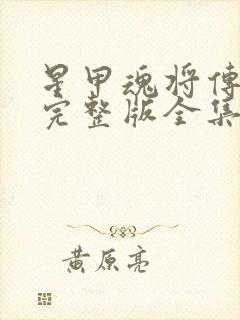 星甲魂将傳
完整版全集
黄原亮